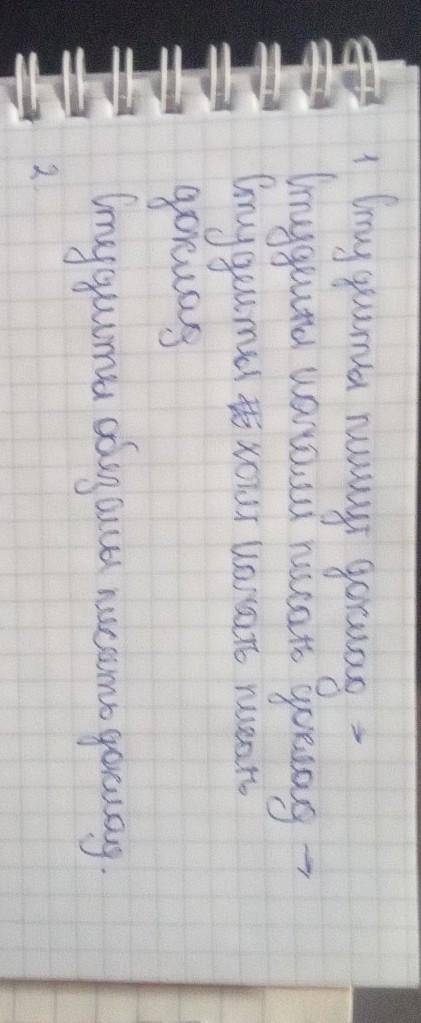 1 Студенты пишут доклад →
Студенты начали писать доклад →
Студенты хотят начать писать
доклад
2.
Студенты обязаны писать доклад.